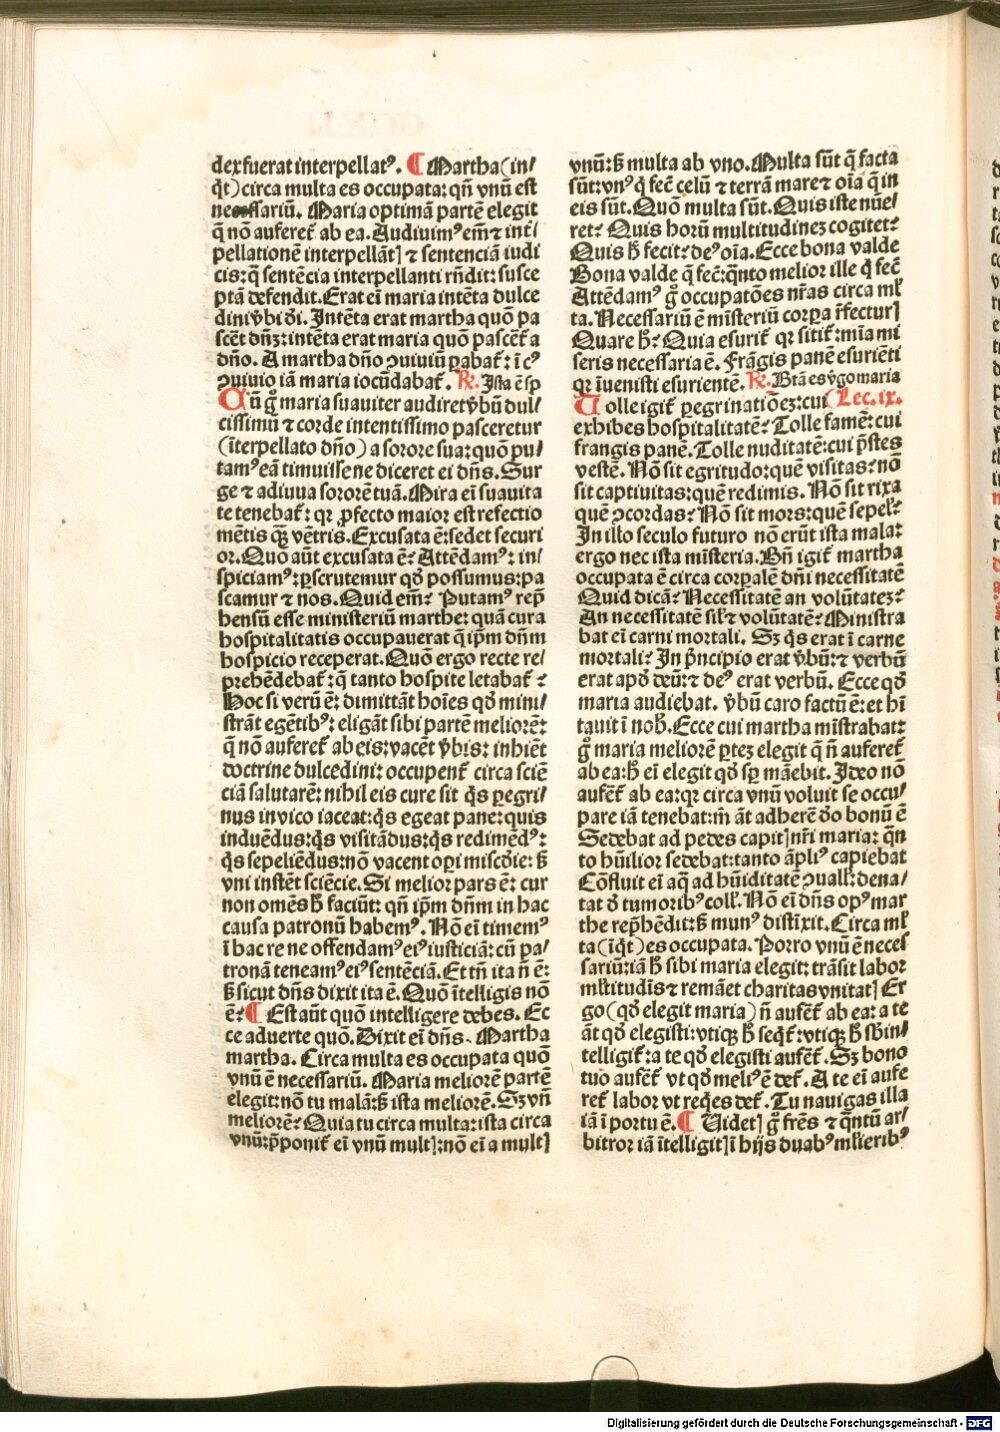 dex fuerat interpellatꝰ. ¶ Martha (in/
q̄t) circa multa es occupata: qñ vnū est
necessariū. Maria optimā partē elegit
q̄ nō auferet᷑ ab ea. Audiuimꝰ em̄ ⁊ int̄/
pellationē interpellāt] ⁊ sentenciā iudi
cis: q̄ sentēcia interpellanti rñdit: susce
ptā defendit. Erat ei᷑ maria intēta dulce
dini v̄bi dñi. Intēta erat martha quō pa
scēt dñ3: intēta erat maria quō pascet᷑ a
dño. A martha dño ɔuiuiū parabat᷑: ī cꝰ
ɔuiuio iā maria iocūdabat᷑. ℟. Ista ē sp
Cū g̊ maria suauiter audiret v̄bū dul/
cissimū ⁊ corde intentissimo pasceretur
(īterpellato dño) a sorore sua: quō pu/
tamꝰ eā timuisse ne diceret ei dñs. Sur
ge ⁊ adiuua sororē tuā. Mira ei᷑ suauita
te tenebat᷑: qꝛ ꝓfecto maior est refectio
mētis qꝫ vētris. Excusata ē: sedet securi
or. Quō aūt excusata ē? Attēdamꝰ: in/
spiciamꝰ: ꝑscrutemur qd̄ possumus: pa
scamur ⁊ nos. Quid em̄? Putamꝰ rep̄
hensū esse ministeriū marthe: quā cura
hospitalitatis occupauerat q̄ ip̄m dñm
hospicio receperat. Quō ergo recte re/
prehēdebat᷑: q̄ tanto hospite letabat᷑?
Hoc si verū ē: dimittāt hoīes qd̄ mini/
strāt egētibꝰ: eligāt sibi partē meliorē:
q̄ nō auferet᷑ ab eis: vacēt v̄bis: inhiēt
doctrine dulcedini: occupent᷑ circa sciē
ciā salutarē: nihil eis cure sit q̇s ꝑegri/
nus in vico iaceat: q̇s egeat pane: quis
induēdus: q̇s visitādus: q̇s redimēdꝰ:
q̇s sepeliēdus: nō vacent oꝑi misc̄die: ß
vni instēt sciēcie. Si melior pars ē: cur
non omēs h̄ faciūt: qñ ip̄m dñm in hac
causa patronū habemꝰ. Nō ei᷑ timemꝰ
ī hac re ne offendamꝰ eiꝰ iusticiā: cū pa/
tronā teneamꝰ eiꝰ sentēciā. Et tñ ita ñ ē:
ß sicut dñs dixit ita ē. Quō ītelligis nō
ē: ¶ Est aūt quō intelligere debes. Ec
ce aduerte quō. Dixit ei᷑ dñs. Martha
martha. Circa multa es occupata quō
vnū ē necessariū. Maria meliorē partē
elegit: nō tu malā: ß ista meliorē. Sꝫ vñ
meliorē? Quia tu circa multa: ista circa
vnū: p̄ponit᷑ ei᷑ vnū mult]: nō ei᷑ a mult]
vnū: ß multa ab vno. Multa sūt q̄ facta
sūt: vnꝰ q̄ fec̄ celū ⁊ terrā mare ⁊ oīa q̄ in
eis sūt. Quō multa sūt. Quis iste nūe/
ret? Quis horū multitudinez cogitet?
Quis h̄ fecit? deꝰ oīa. Ecce bona valde
Bona valde q̄ fec̄: q̄nto melior ille q̄ fec̄
Attēdamꝰ g̊ occupatōes nr̄as circa ml̄
ta. Necessariū ē mīsteriū corꝑa r̄fectur]
Quare h̄? Quia esurit᷑ qꝛ sitit᷑: mīa mi
seris necessaria ē. Frāgis panē esuriēti
qꝛ īuenisti esurientē. ℟. Btā es v̄go maria
Tolle igit᷑ ꝑegrinatiōez: cui (Lec. ix.
exhibes hospitalitatē? Tolle famē: cui
frangis panē. Tolle nuditatē: cui p̄stes
vestē. Nō sit egritudo: quē visitas? nō
sit captiuitas: quē redimis. Nō sit rixa
quē ɔcordas? Nō sit mors: quē sepel̄?
In illo seculo futuro nō erūt ista mala:
ergo nec ista mīsteria. Bñ igit᷑ martha
occupata ē circa corꝑalē dñi necessitatē
Quid dicā? Necessitatē an volūtatez?
An necessitatē sil̄ ⁊ volūtatē? Ministra
bat ei᷑ carni mortali. Sꝫ q̇s erat ī carne
mortali? In p̄ncipio erat v̄bū: ⁊ verbū
erat apd̄ deū: ⁊ deꝰ erat verbū. Ecce qd̄
maria audiebat. v̄bū caro factū ē: et hī
tauit ī nob̄. Ecce cui martha mīstrabat:
g̊ maria meliorē ꝑtez elegit q̄ ñ auferet᷑
ab ea: h̄ ei᷑ elegit qd̄ sꝑ māebit. Ideo nō
aufēt᷑ ab ea: qꝛ circa vnū voluit se occu/
pare iā tenebat: m̄ āt adherē deo bonū ē
Sedebat ad pedes capit] nr̄i maria: q̄n
to hūilior sedebat: tanto āpliꝰ capiebat
Cōfluit ei᷑ aq̄ ad hūiditatē ɔuall᷑: dena/
tat d̄ tumoribꝰ coll᷑. Nō ei᷑ dñs opꝰ mar
the rep̄hēdit: ß munꝰ distīxit. Circa ml̄
ta (īqt̄) es occupata. Porro vnū ē neces
sariū: iā h̄ sibi maria elegit: trāsit labor
ml̄titudīs ⁊ remāet charitas vnitat] Er
go (qd̄ elegit maria) ñ aufēt᷑ ab ea: a te
āt qd̄ elegisti: vtiqꝫ h̄ seqt᷑: vtiqꝫ h̄ sb̄in/
telligit᷑: a te qd̄ elegisti aufēt᷑. Sꝫ bono
tuo aufēt᷑ vt qd̄ meliꝰ ē det᷑. A te ei᷑ aufe
ret᷑ labor vt reqes det᷑. Tu nauigas illa
iā ī portu ē. ¶ Videt] g̊ fr̄es ⁊ q̄ntū ar/
bitror iā ītelligit] ī hijs duabꝰ ml̄ieribꝰ
Digitalisierung gefördert durch die Deutsche Forschungsgemeinschaft - DFG